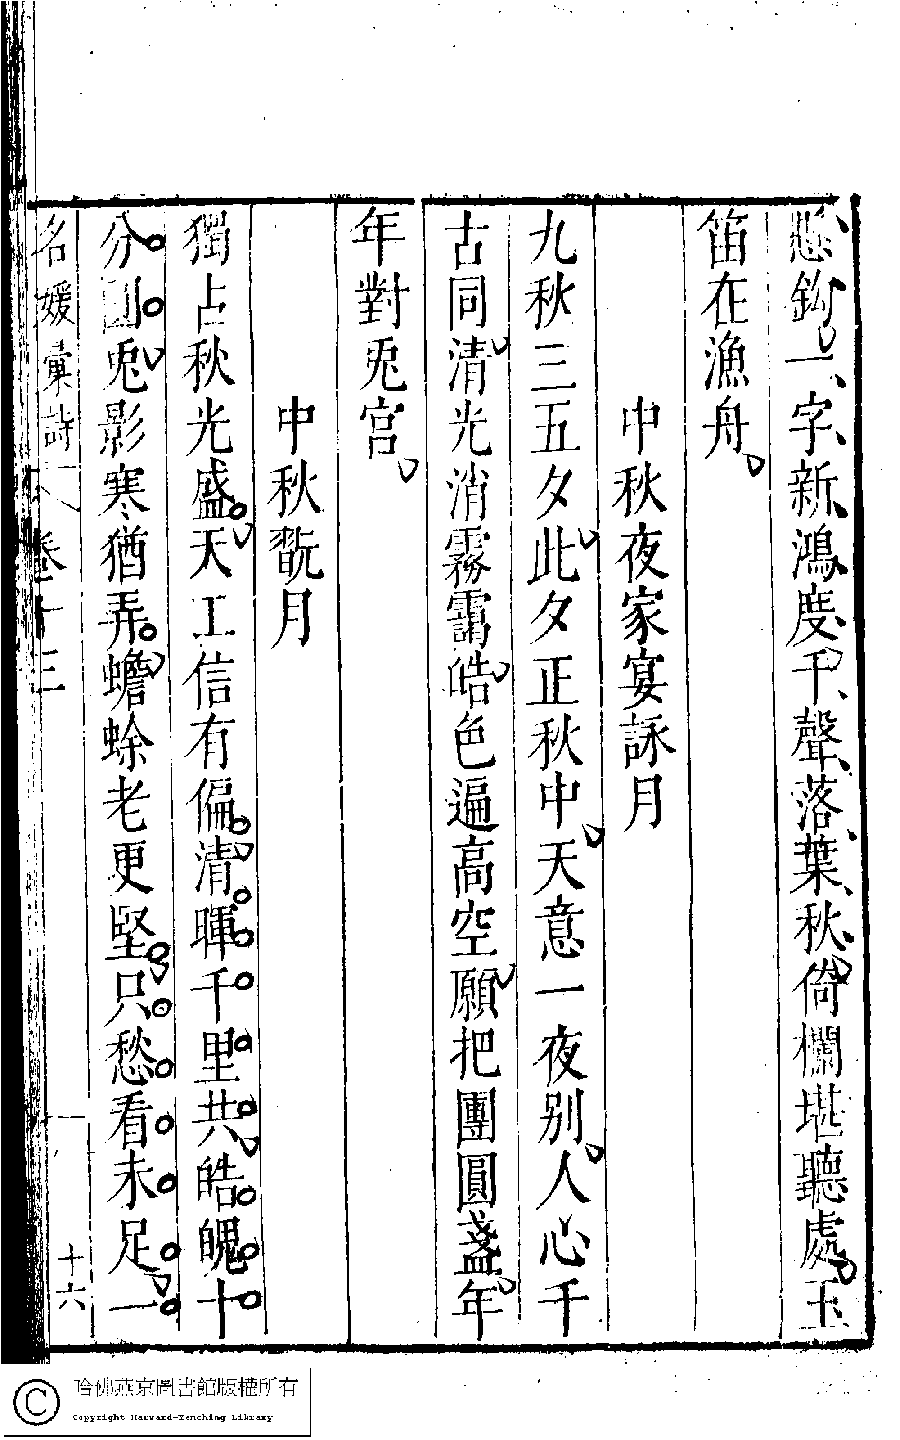 懸鈎一字新鴻度千聲落葉秋倚欄堪聽處玉
笛在漁舟
中秋夜家宴詠月
九秋三五夕此夕正秋中天意一夜别人心千
古同清光消霧靄皓色遍高空願把團圓盞年
年對兎宮
中秋翫月
獨占秋光盛天工信有偏清暉千里共皓魄十
分圓兎影寒猶弄蟾蜍老更堅只愁看未足一
名媛彙詩 卷十三 十六
哈佛燕京圖書館版權所有
Copyright Harvard-Yenching Library